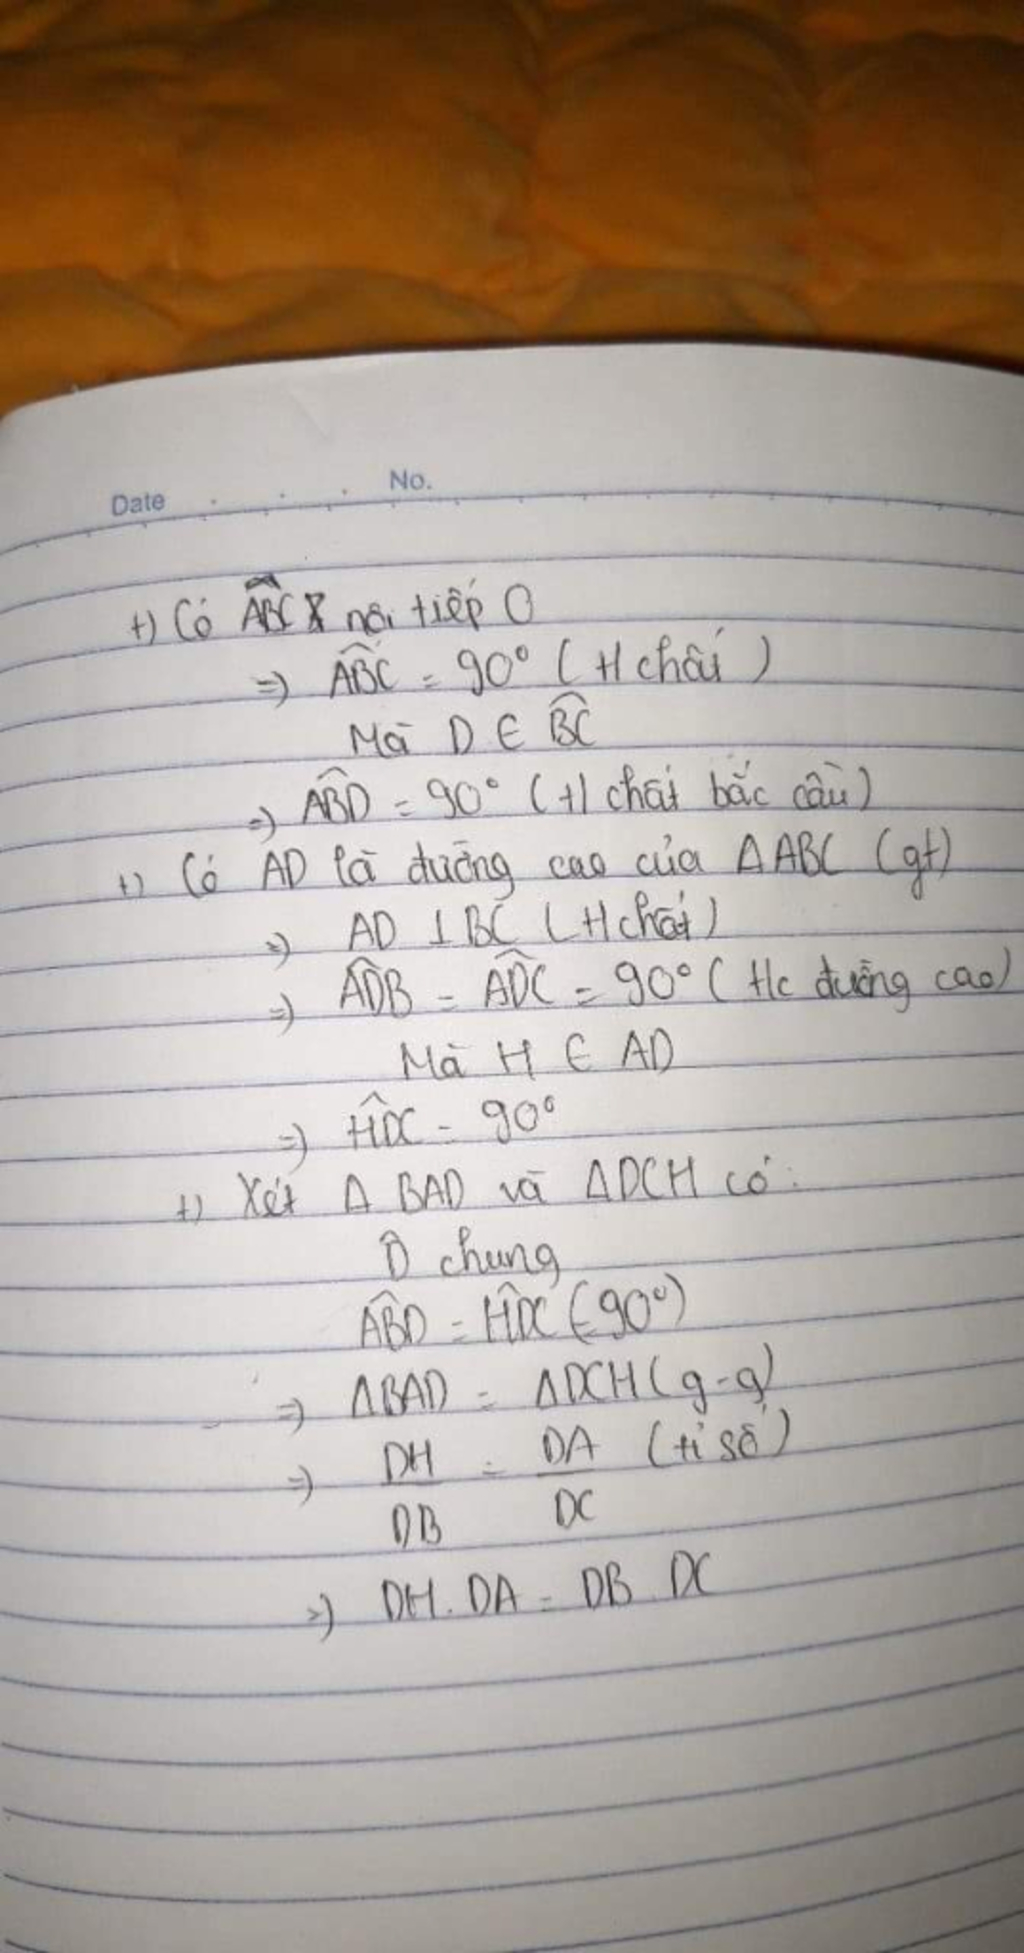 Date No.
+) Có ABC nội tiếp O
=) ABĈ = 90° (t/chất)
Mà D ∈ BĈ
=) AB̂D = 90° (t/chất bắc cầu)
+) Có AD là đường cao của ΔABC (gt)
=) AD ⊥ BC (t/chất)
=) AD̂B = AD̂C = 90° (t/c đường cao)
Mà H ∈ AD
=) HD̂C = 90°
+) Xét Δ BAD và ΔDCH có:
D̂ chung
AB̂D = HD̂C (=90°)
=) ΔBAD = ΔDCH (g-g)
=) DH/DB = DA/DC (tỉ số)
=) DH.DA = DB.DC